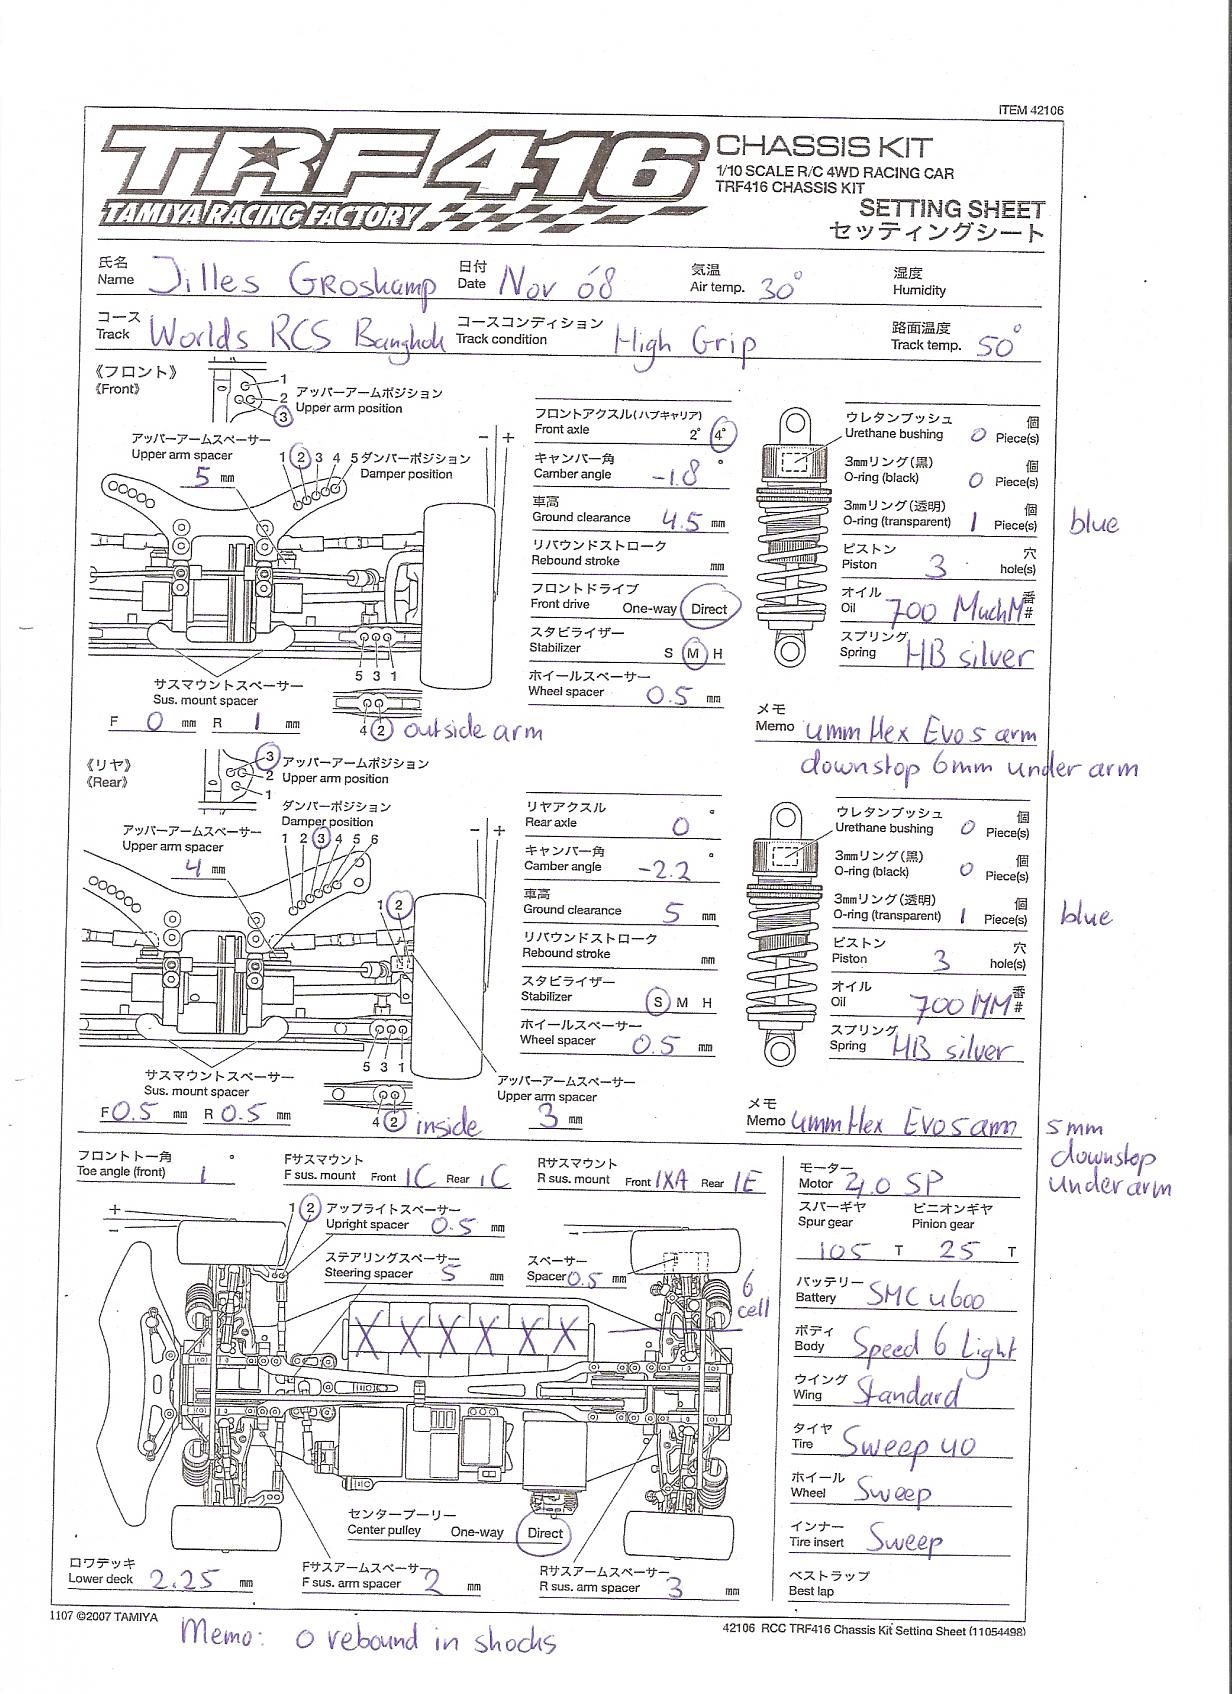 ITEM 42106
TRF416
TAMIYA RACING FACTORY
CHASSIS KIT
1/10 SCALE R/C 4WD RACING CAR
TRF416 CHASSIS KIT
SETTING SHEET
セッティングシート
氏名 Name Jilles Groskamp 日付 Date Nov '08 気温 Air temp. 30° 湿度 Humidity
コース Track Worlds RCS Bangkok コースコンディション Track condition High Grip 路面温度 Track temp. 50°
《フロント》
《Front》
1
2
3
アッパーアームポジション
Upper arm position
アッパーアームスペーサー
Upper arm spacer
5 mm
1 2 3 4 5 ダンパーポジション
Damper position
− +
フロントアクスル(ハブキャリア)
Front axle 2° 4°
キャンバー角
Camber angle -1.8 °
車高
Ground clearance 4.5 mm
リバウンドストローク
Rebound stroke mm
フロントドライブ
Front drive One-way Direct
スタビライザー
Stabilizer S M H
ホイールスペーサー
Wheel spacer 0.5 mm
ウレタンブッシュ 個
Urethane bushing 0 Piece(s)
3mmリング(黒) 個
O-ring (black) 0 Piece(s)
3mmリング(透明) 個
O-ring (transparent) 1 Piece(s) blue
ピストン 穴
Piston 3 hole(s)
オイル 番
Oil 700 MuchM #
スプリング
Spring HB silver
5 3 1
サスマウントスペーサー
Sus. mount spacer
F 0 mm R 1 mm
4 2 outside arm
メモ
Memo 4mm Hex Evo5 arm
downstop 6mm under arm
《リヤ》
《Rear》
3
2
1
アッパーアームポジション
Upper arm position
ダンパーポジション
Damper position
1 2 3 4 5 6
アッパーアームスペーサー
Upper arm spacer
4 mm
− +
1 2
リヤアクスル
Rear axle 0 °
キャンバー角
Camber angle -2.2 °
車高
Ground clearance 5 mm
リバウンドストローク
Rebound stroke mm
スタビライザー
Stabilizer S M H
ホイールスペーサー
Wheel spacer 0.5 mm
ウレタンブッシュ 個
Urethane bushing 0 Piece(s)
3mmリング(黒) 個
O-ring (black) 0 Piece(s)
3mmリング(透明) 個
O-ring (transparent) 1 Piece(s) blue
ピストン 穴
Piston 3 hole(s)
オイル 番
Oil 700 MM #
スプリング
Spring HB silver
5 3 1
サスマウントスペーサー
Sus. mount spacer
F 0.5 mm R 0.5 mm
4 2 inside
アッパーアームスペーサー
Upper arm spacer
3 mm
メモ
Memo 4mm Hex Evo5 arm 5mm
downstop
under arm
フロントトー角
Toe angle (front) 1 °
Fサスマウント
F sus. mount Front 1C Rear 1C
Rサスマウント
R sus. mount Front 1XA Rear 1E
+
−
1 2 アップライトスペーサー
Upright spacer 0.5 mm
ステアリングスペーサー
Steering spacer 5 mm
スペーサー
Spacer 0.5 mm
+
−
6
cell
X X X X X X
センタープーリー
Center pulley One-way Direct
ロワデッキ
Lower deck 2.25 mm
Fサスアームスペーサー
F sus. arm spacer 2 mm
Rサスアームスペーサー
R sus. arm spacer 3 mm
モーター
Motor 4.0 SP
スパーギヤ ピニオンギヤ
Spur gear Pinion gear
105 T 25 T
バッテリー
Battery SMC 4600
ボディ
Body Speed 6 Light
ウイング
Wing Standard
タイヤ
Tire Sweep 40
ホイール
Wheel Sweep
インナー
Tire insert Sweep
ベストラップ
Best lap
1107 ©2007 TAMIYA
42106 RCC TRF416 Chassis Kit Setting Sheet (11054498)
Memo: 0 rebound in shocks